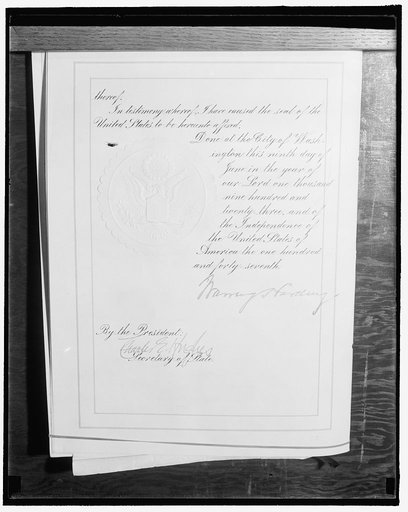 thereof.
In testimony whereof, I have caused the seal of the
United States to be hereunto affixed.
Done at the City of Wash
ington this ninth day of
June in the year of
our Lord one thousand
nine hundred and
twenty three, and of
the Independence of
the United States of
America the one hundred
and forty seventh.
Warren G Harding.
By the President:
Charles E Hughes
Secretary of State.